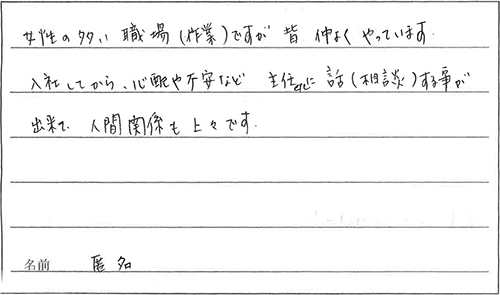 女性の多い 職場(作業)ですが 皆 仲よく やっています.
入社してから、心配や不安など 主任に 話(相談)する事が
出来て 人間関係も 上々です.
名前 匿名